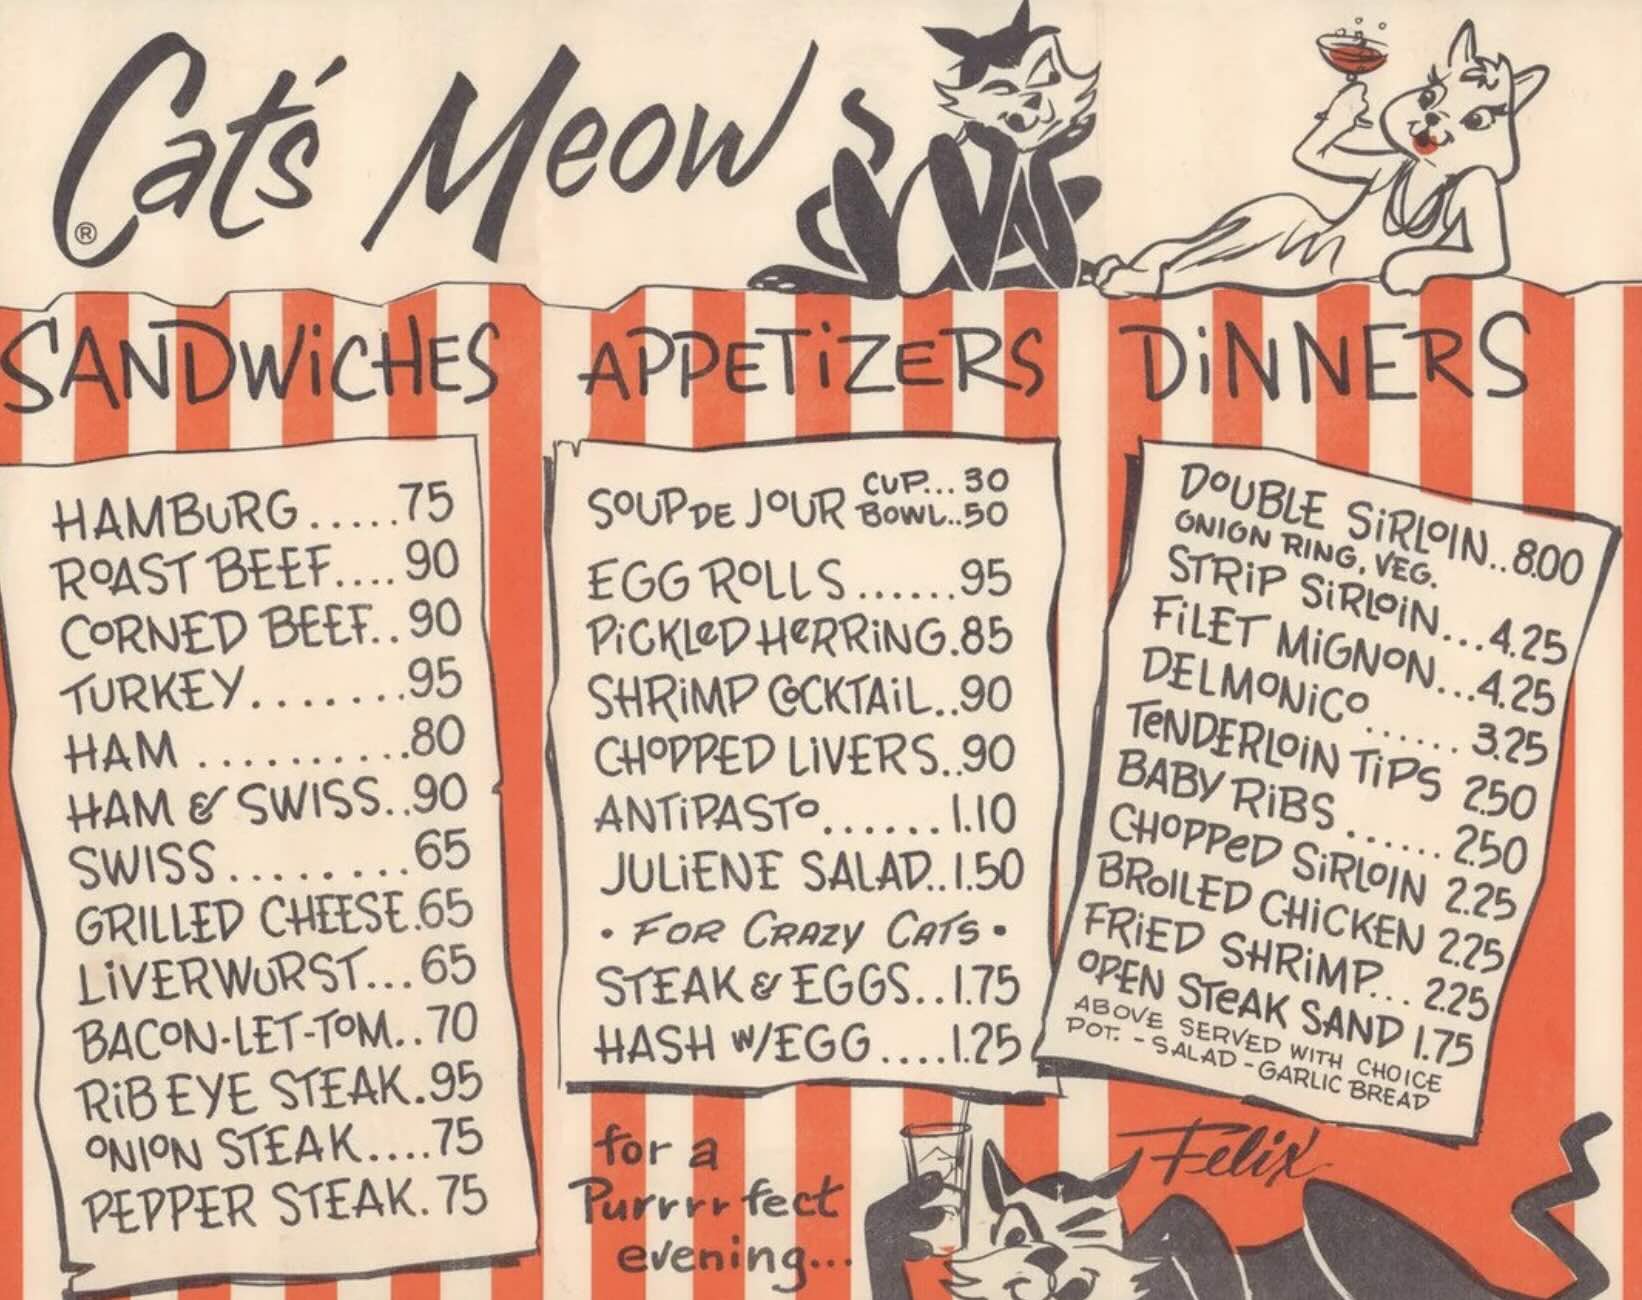 Cat's Meow
®
SANDWiCHES
HAMBURG.....75
ROAST BEEF....90
CORNED BEEF..90
TURKEY.......95
HAM ..........80
HAM & SWISS..90
SWISS........65
GRILLED CHEESE.65
LiVERWURST...65
BACON-LET-TOM..70
RiB EYE STEAK.95
ONION STEAK....75
PEPPER STEAK.75
APPETiZERS
SOUP DE JOUR CUP...30
BOWL..50
EGG ROLLS......95
PiCKLeD HeRRiNG.85
SHRiMP COCKTAiL..90
CHOPPED LiVERS..90
ANTiPASTO......1.10
JULiENE SALAD..1.50
• FOR CRAZY CATS •
STEAK & EGGS..1.75
HASH W/EGG....1.25
DiNNERS
DOUBLE SiRLOIN..8.00
ONION RING, VEG.
STRiP SiRLOiN...4.25
FiLET MiGNON...4.25
DELMONiCO......3.25
TeNDERLOiN TiPS 2.50
BABY RiBS......2.50
CHOPPeD SiRLOIN 2.25
BROILED CHiCKEN 2.25
FRiED SHRiMP...2.25
OPEN STeAK SAND 1.75
ABOVE SERVED WITH CHOICE
POT. - SALAD - GARLIC BREAD
for a
Purrrrfect
evening...
Felix